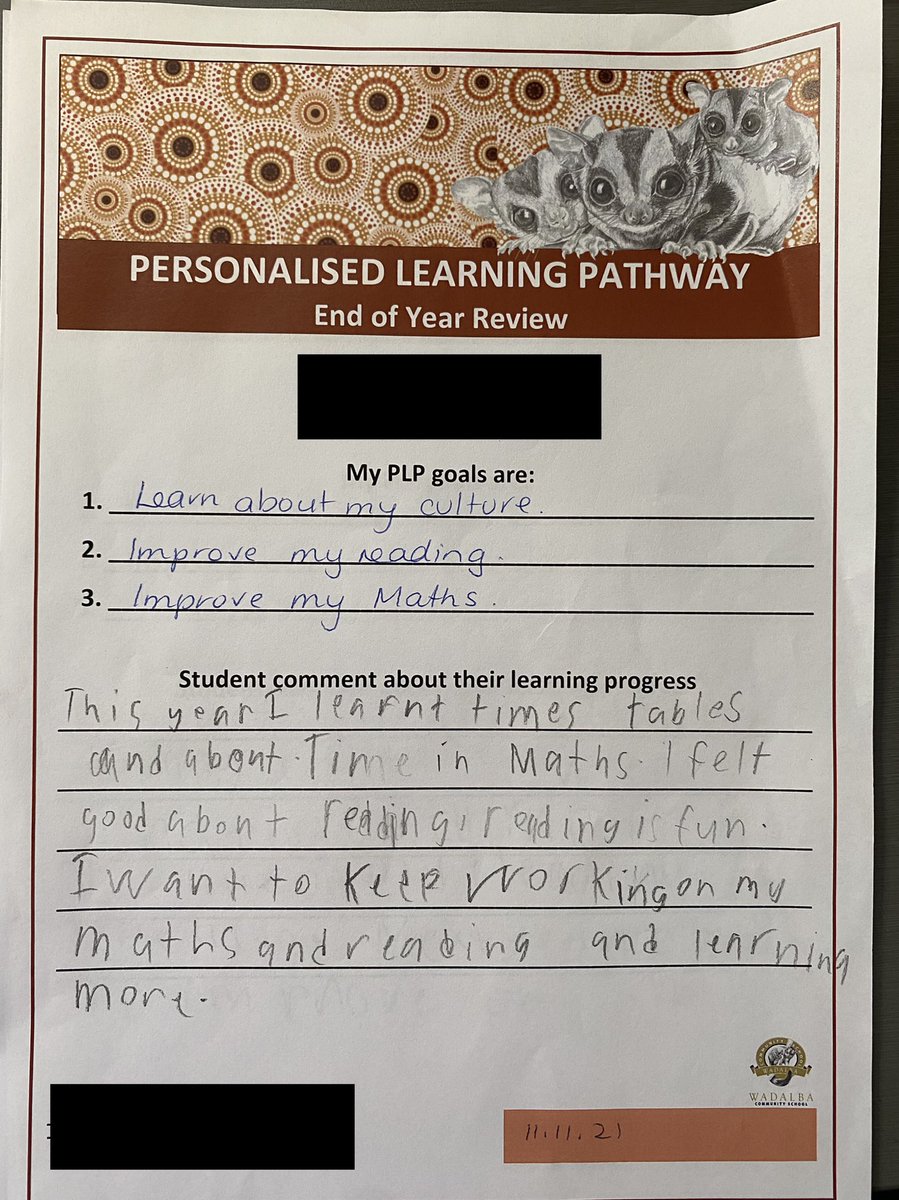 PERSONALISED LEARNING PATHWAY
End of Year Review
My PLP goals are:
1. Learn about my culture.
2. Improve my reading.
3. Improve my Maths.
Student comment about their learning progress
This year I learnt times tables
and about. Time in Maths. I felt
good about reading, reading is fun.
I want to keep working on my
maths and reading and learning
more.
COMMUNITY SCHOOL
WADALBA
WADALBA
COMMUNITY SCHOOL
11.11.21